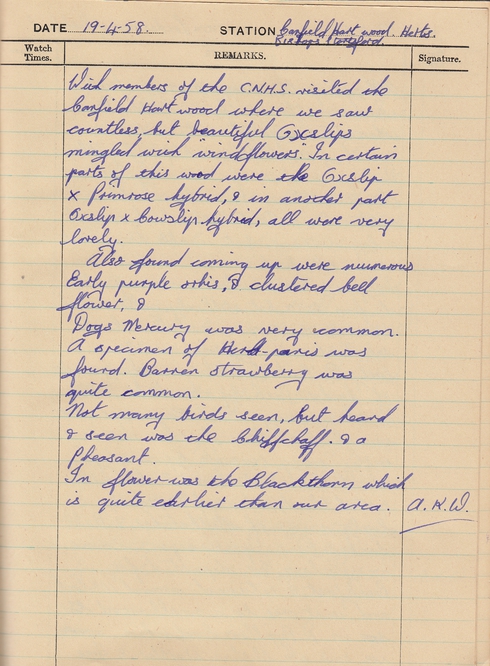 DATE 19-4-58. STATION Canfield Hart wood. Herts.
Bishops Stortford.
Watch Times. REMARKS. Signature.
With members of the C.N.H.S. visited the
Canfield Hart wood where we saw
countless, but beautiful Oxslips
mingled with "windflowers". In certain
parts of this wood were the Oxslip
x Primrose hybrid, & in another part
Oxslip x Cowslip hybrid, all were very
lovely.
Also found coming up were numerous
Early purple orhis, & clustered bell
flower, &
Dogs Mercury was very common.
A specimen of Herb-paris was
found. Barren strawberry was
quite common.
Not many birds seen, but heard
& seen was the Chiffchaff. & a
Pheasant.
In flower was the Blackthorn which
is quite earlier than our area. A.K.W.